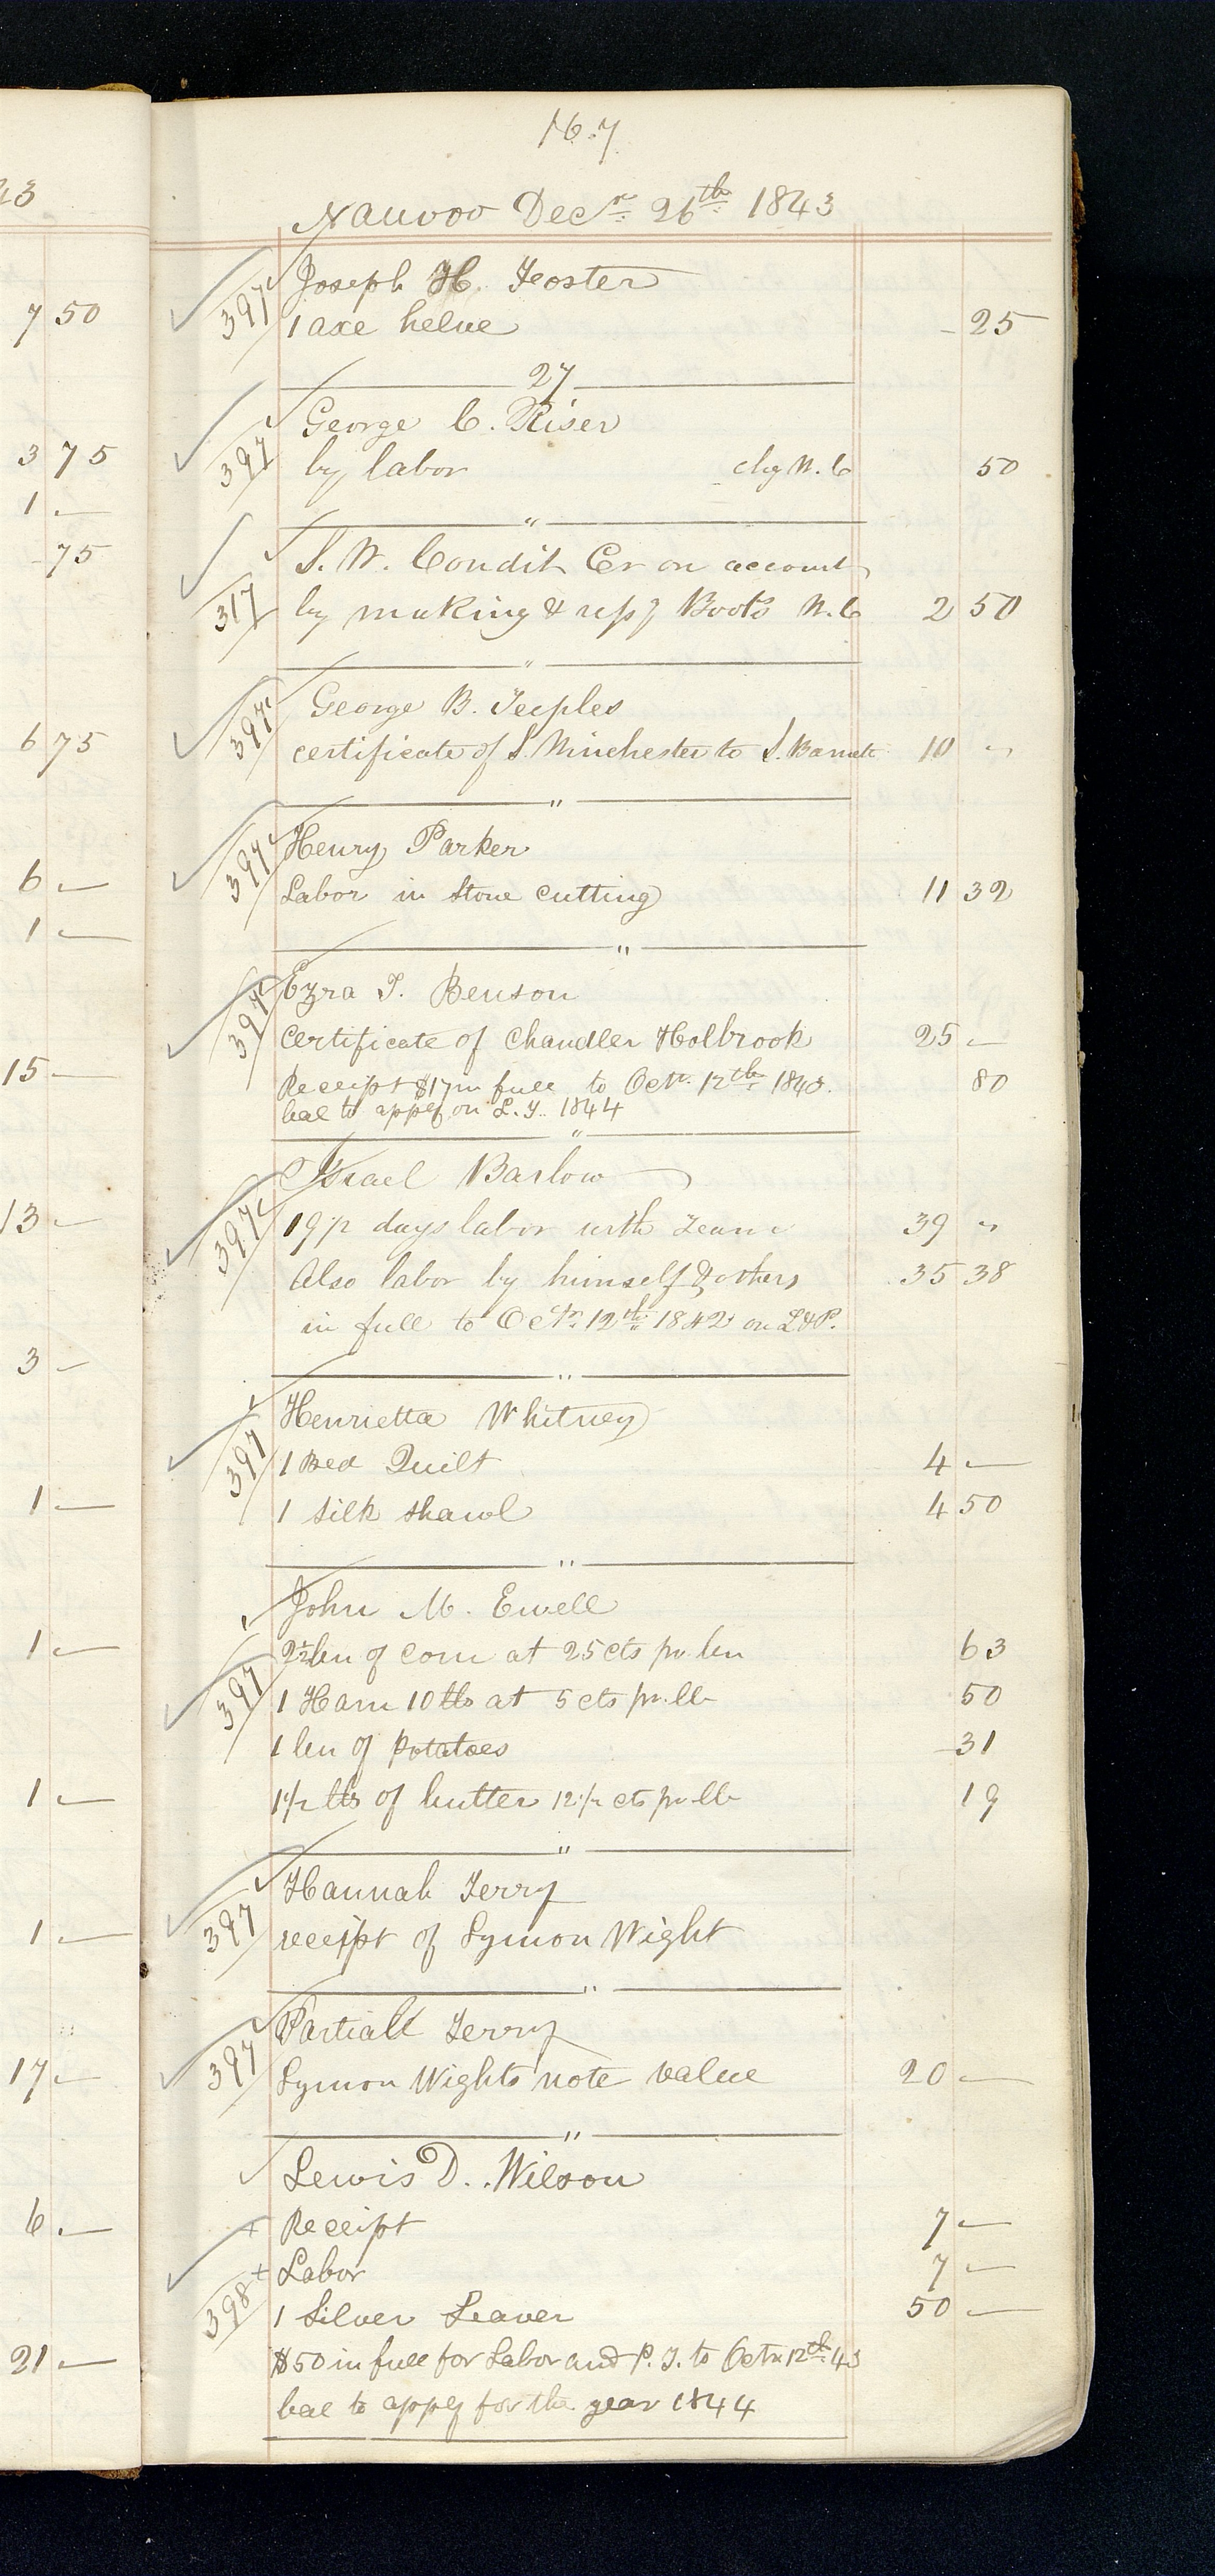 167
Nauvoo Decr. 26th 1843
397 Joseph H. Foster
1 axe helve - 25
27
397 George C. Riser
by labor chg N. C 50
"
S. W. Condit Cr on account
317 by making & repg Boots N. C 2 50
"
397 George B. Teeples
certificate of S. Winchester to S. Barnett 10 "
"
397 Henry Parker
Labor in Stone cutting 11 32
"
397 Ezra T. Benson
Certificate of Chandler Holbrook 25 —
Receipt $17 in full to Octr. 12th 1843. 80
bal to apply on L. T. 1844
"
Israel Barlow
397 19 1/2 days labor with Team 39 "
Also labor by himself & others 35 38
in full to Octr. 12th 1842 on L & P.
"
Henrietta Whitney
397 1 Bed Quilt 4 —
1 Silk Shawl 4 50
"
John M. Ewell
2 1/2 bu of Corn at 25 cts pr. bu 63
397 1 Ham 10 lbs at 5 cts pr. lb 50
1 bu of Potatoes 31
1 1/2 lbs of butter 12 1/2 cts pr lb 19
"
Hannah Terry
397 receipt of Lymon Wight
"
Partiall Terry
397 Lymon Wights note value 20 —
"
Lewis D. Wilson
+ Receipt 7 —
+ Labor 7 —
398 1 Silver Leaver 50 —
$50 in full for Labor and P. T. to Octr 12th 43
bal to apply for the year 1844
43
7 50
3 75
1 —
75
6 75
6 —
1 —
15 —
13 —
3 —
1 —
1 —
1 —
1 —
17 —
6 —
21 —